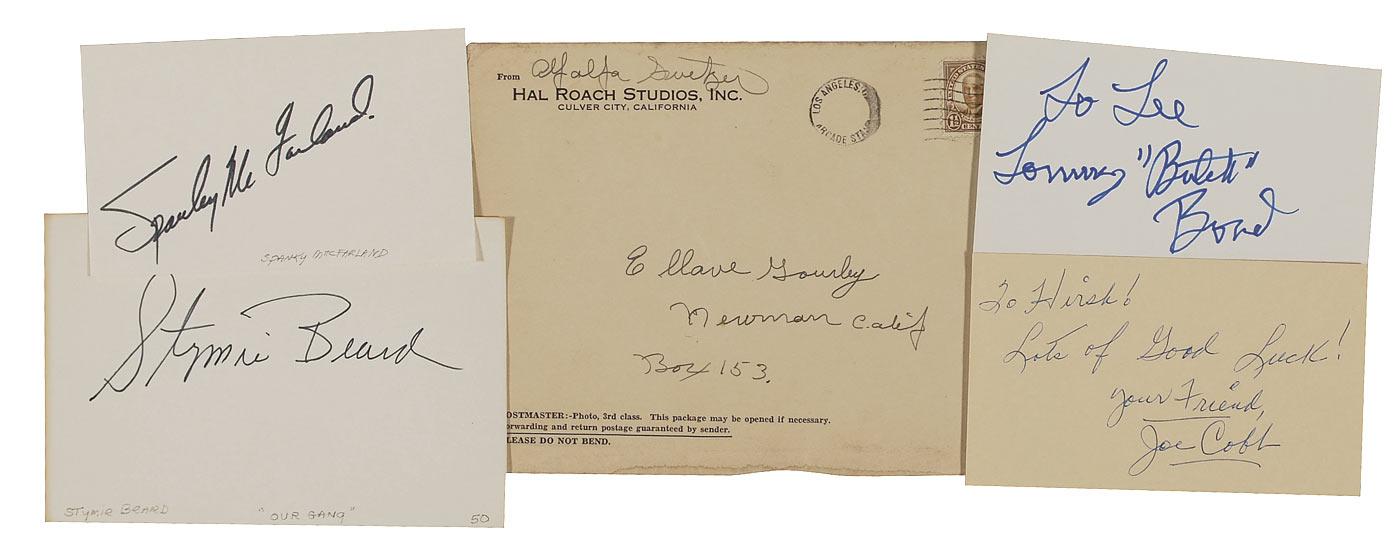 Spanky Mc Farland.
SPANKY MCFARLAND
Stymie Beard
STYMIE BEARD "OUR GANG" 50
From Alfalfa Switzer
HAL ROACH STUDIOS, INC.
CULVER CITY, CALIFORNIA
LOS ANGELES,
ARCADE STA
UNITED STATES
1½ CENT
E Gourley
Newman Calif
Box 153.
OSTMASTER:-Photo, 3rd class. This package may be opened if necessary.
orwarding and return postage guaranteed by sender.
LEASE DO NOT BEND.
To Lee
Tommy "Butch"
Bond
To Hirsh!
Lots of Good Luck!
Your Friend,
Joe Cobb